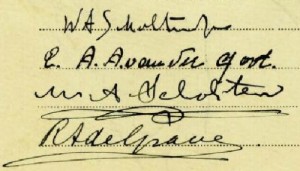 W A Scholten Jr
E. A. A. van der Goot.
M A Scholten
R Adelgrave